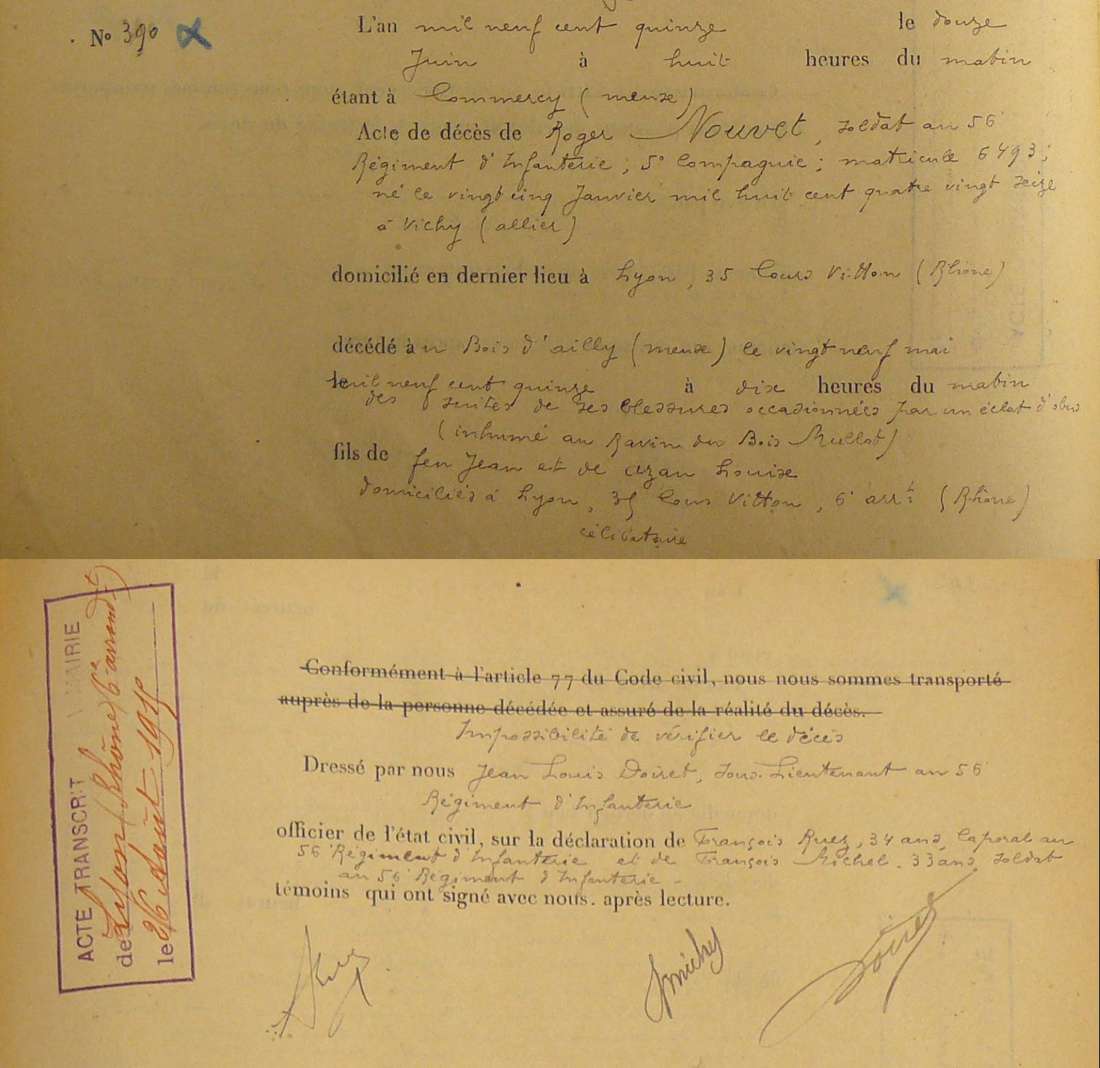 N° 390
L'an mil neuf cent quinze le douze
Juin à huit heures du matin
étant à Commercy (meuse)
Acte de décès de Roger Nouvet, soldat au 56
Régiment d'Infanterie ; 5° Compagnie ; matricule 6493 ;
né le vingt cinq Janvier mil huit cent quatre vingt seize
à Vichy (allier)
domicilié en dernier lieu à Lyon, 35 Cours Vitton (Rhône)
décédé au Bois d'ailly (meuse) le vingt neuf mai
mil neuf cent quinze à dix heures du matin
des suites de ses blessures occasionnées par un éclat d'obus
(inhumé au Ravin du Bois Mullot)
fils de feu Jean et de Azan Louise
domiciliés à Lyon, 35 Cours Vitton, 6° arrt (Rhône)
célibataire
Conformément à l'article 77 du Code civil, nous nous sommes transporté
auprès de la personne décédée et assuré de la réalité du décès.
Impossibilité de vérifier le décès
Dressé par nous Jean Louis Doiret, Sous-Lieutenant au 56
Régiment d'Infanterie
officier de l'état civil, sur la déclaration de François Ruez, 34 ans, Caporal au
56° Régiment d'Infanterie et de François Michel. 33 ans, soldat
au 56° Régiment d'Infanterie -
témoins qui ont signé avec nous. après lecture.
ACTE TRANSCRIT MAIRIE
de Lyon (Rhône) (6e arrondt)
le 26 août 1915